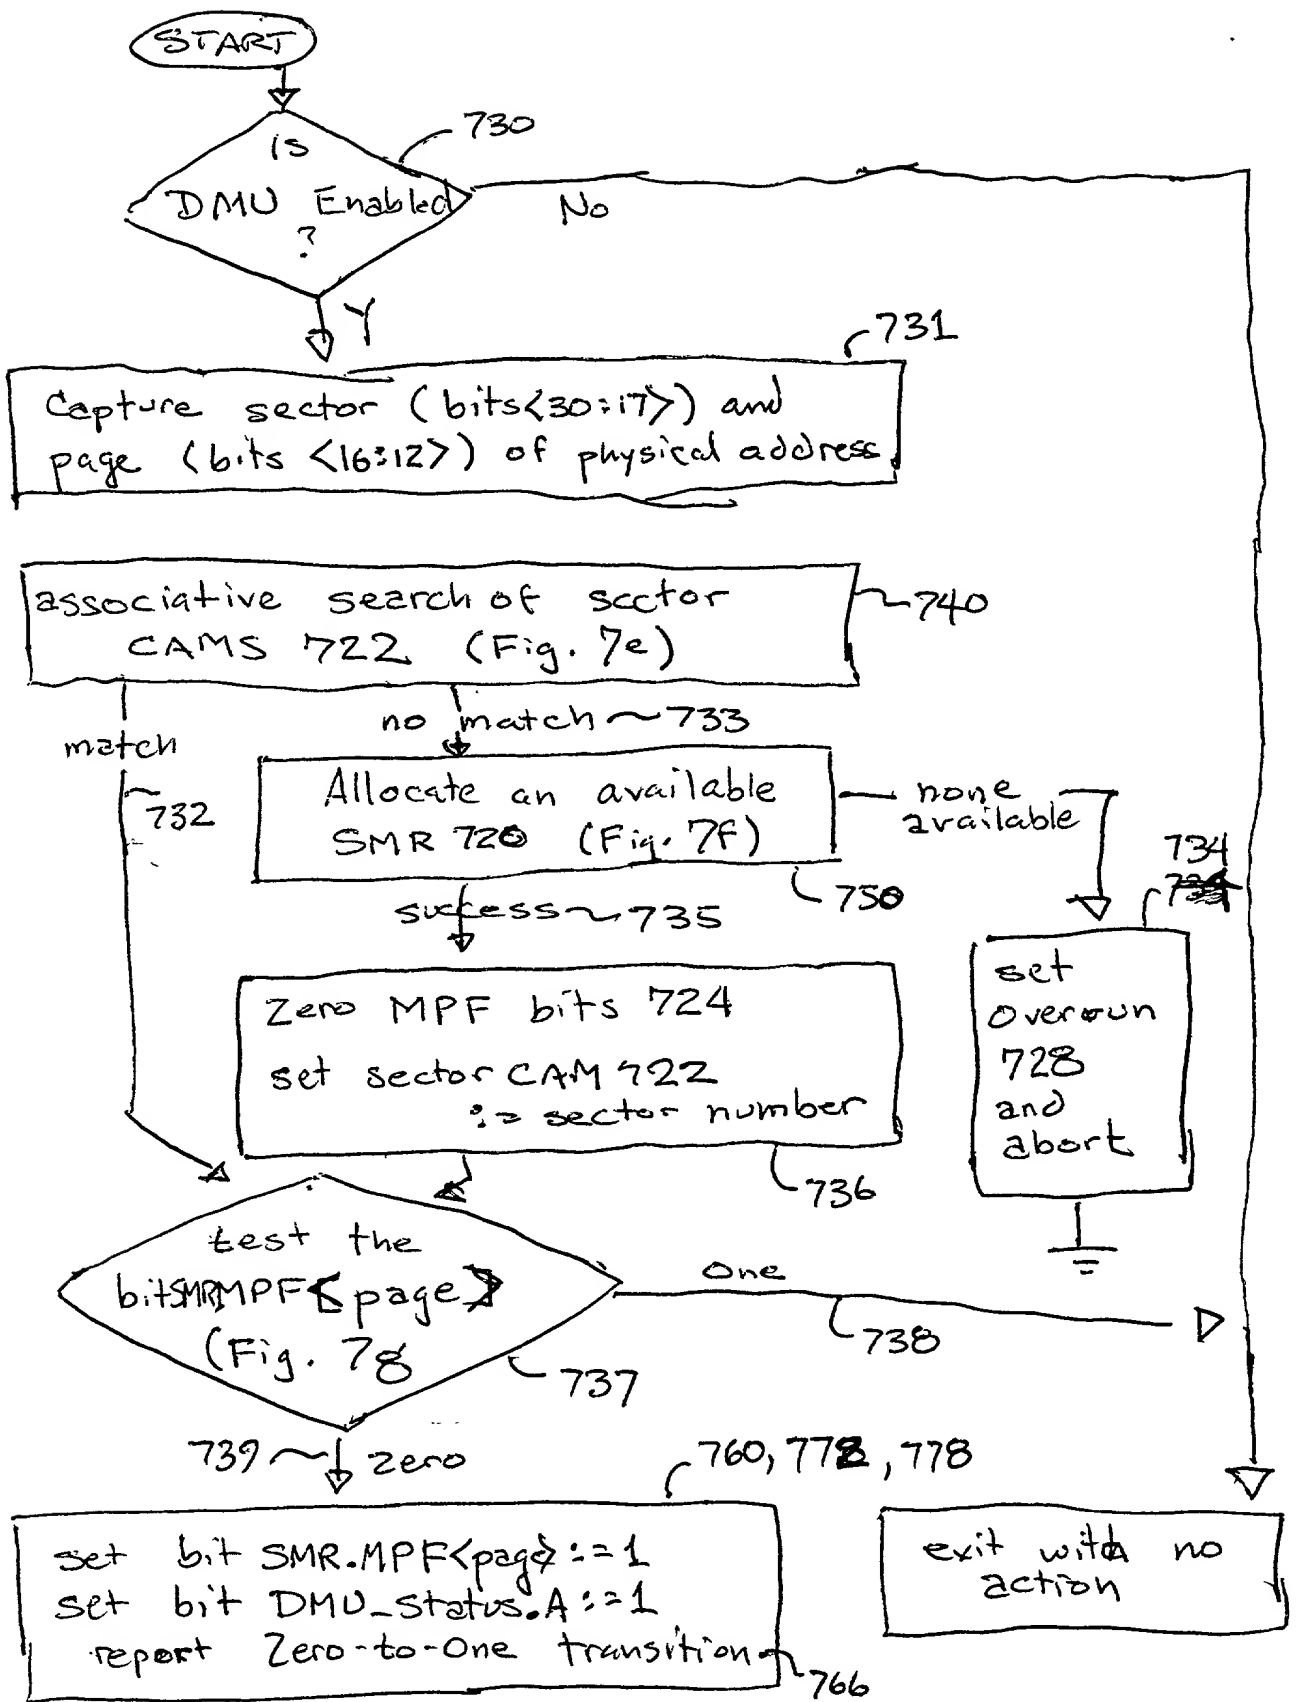 START
730
is
DMU Enabled
?
No
Y
731
Capture sector (bits<30:17>) and
page (bits <16:12>) of physical address
associative search of sector
CAMS 722 (Fig. 7e)
740
match
no match ~ 733
732
Allocate an available
SMR 720 (Fig. 7f)
none
available
750
734
success ~ 735
set
overrun
728
and
abort
Zero MPF bits 724
set sector CAM 722
:= sector number
736
test the
bit SMR MPF<page>
(Fig. 7g
One
738
737
739
zero
760, 772, 778
set bit SMR.MPF<page> :=1
set bit DMU_Status.A :=1
report Zero-to-One transition
766
exit with no
action